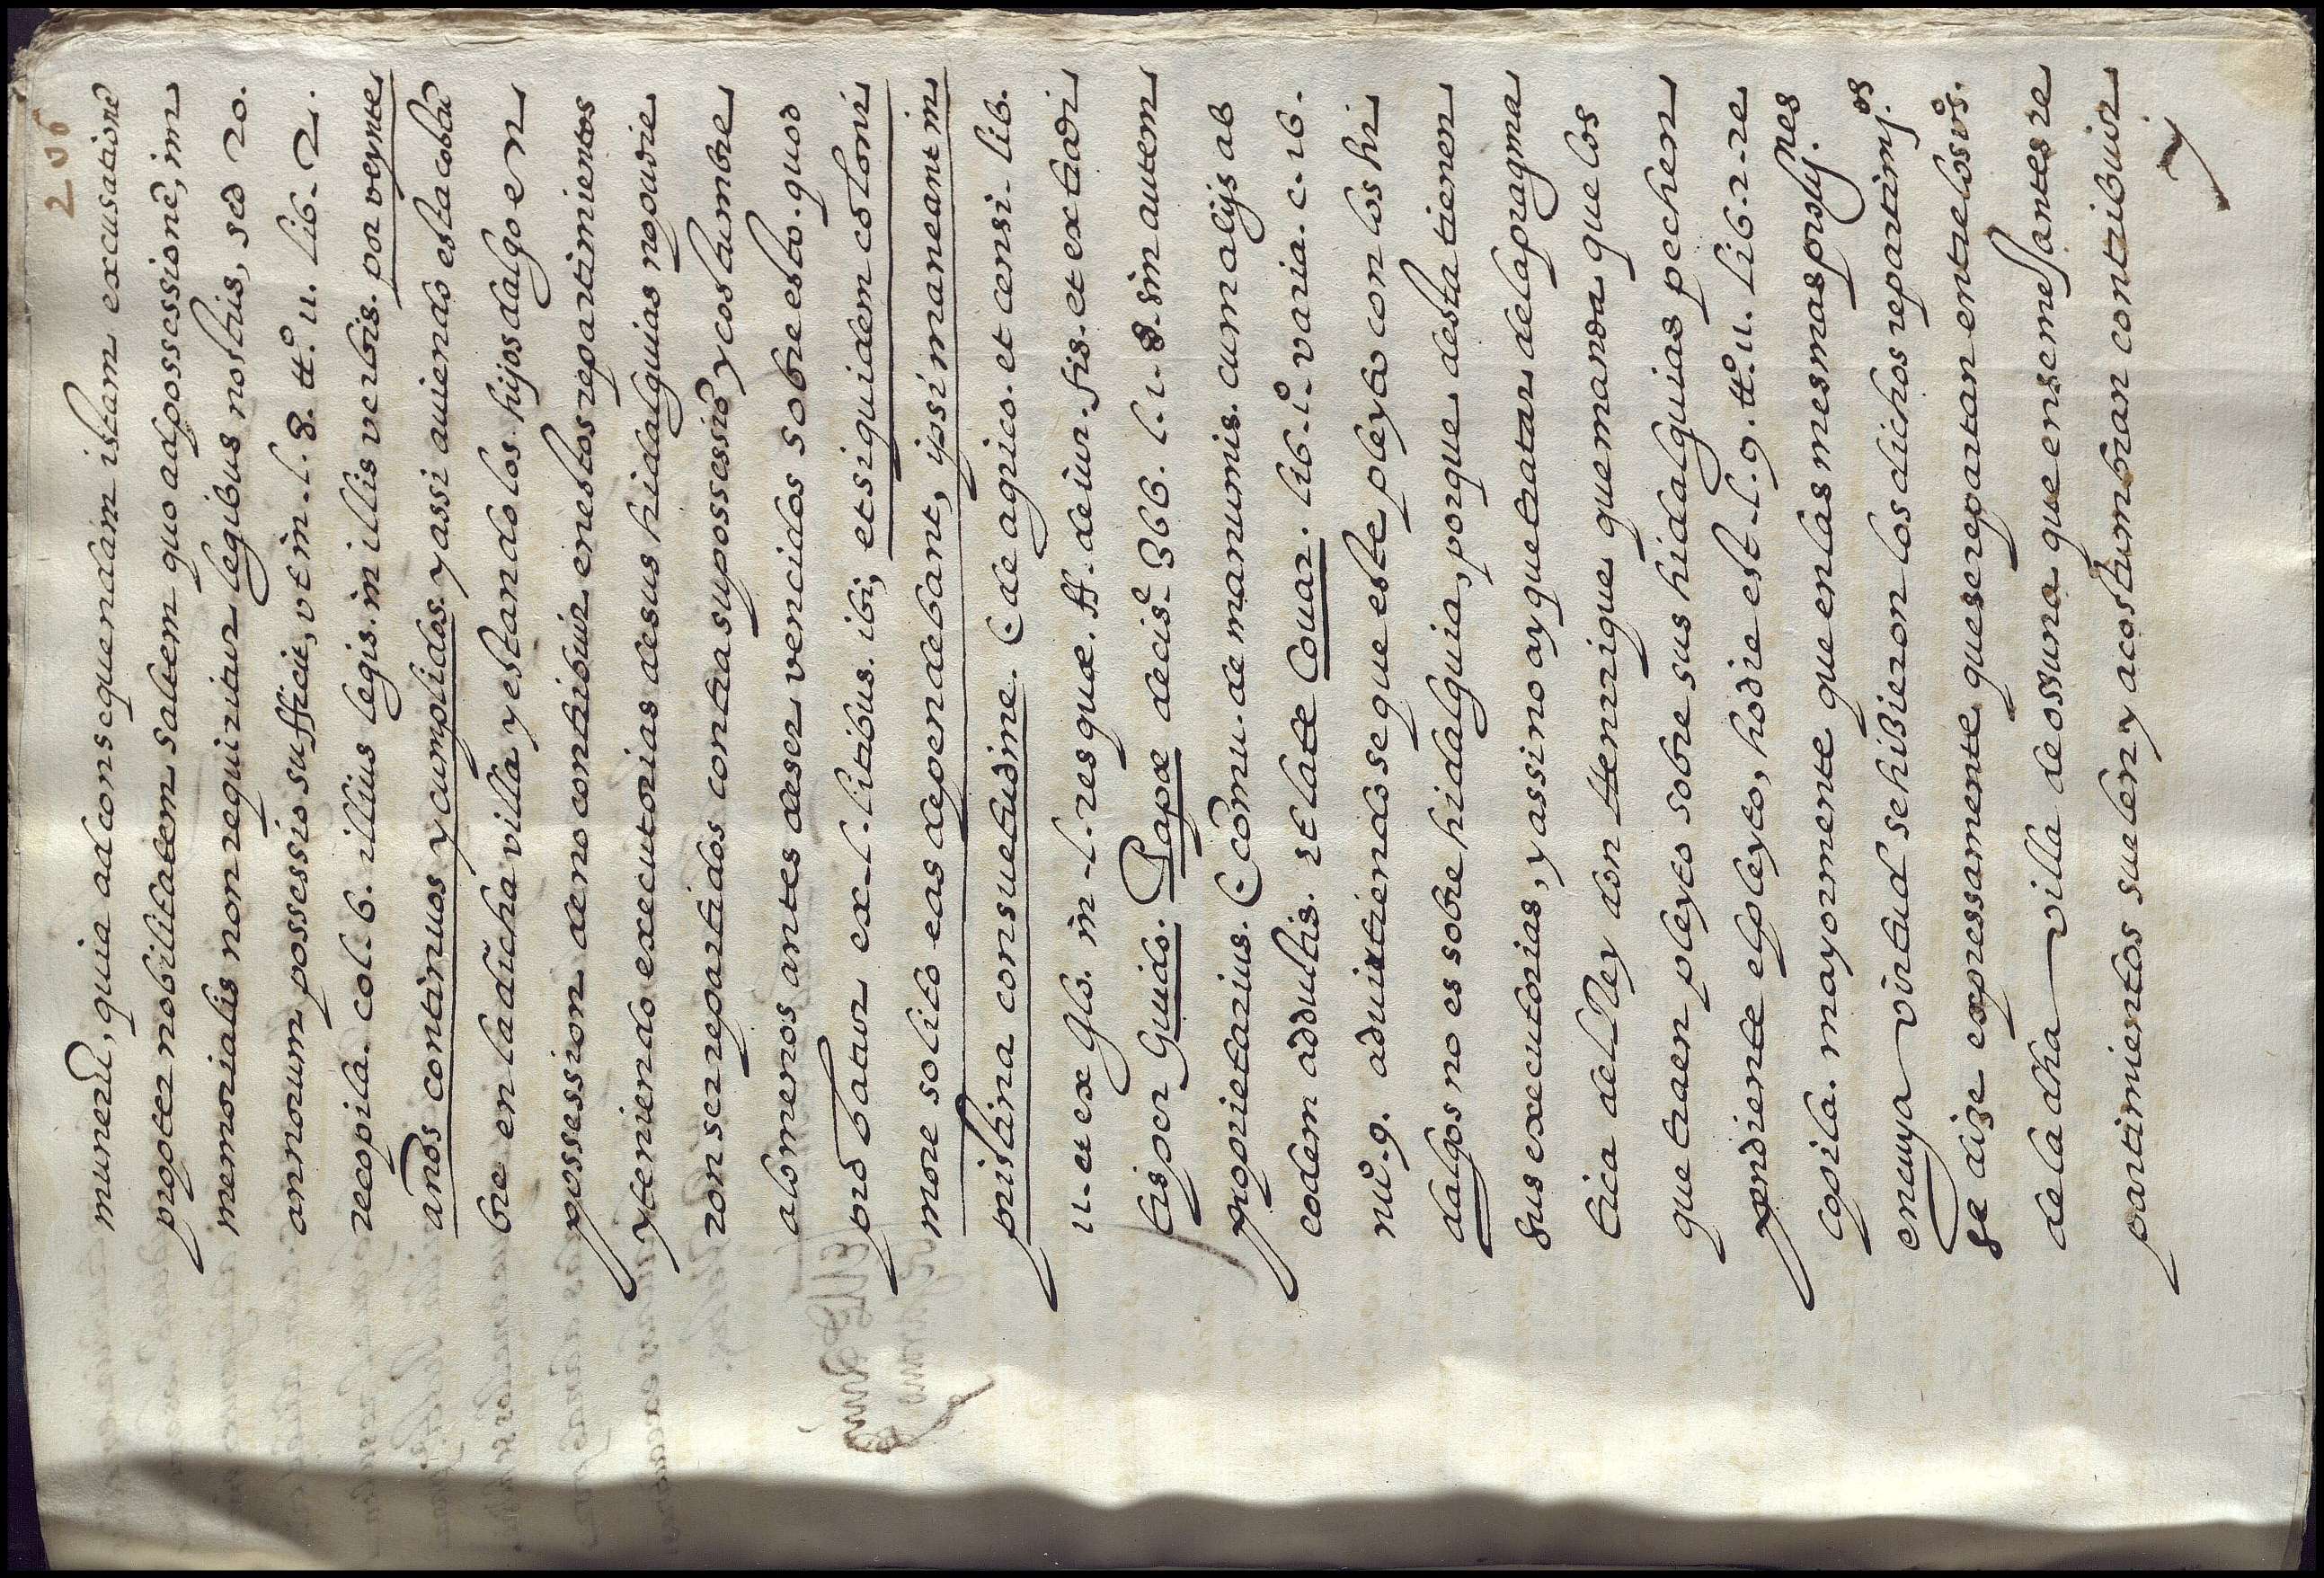 206
munerũ, quia ad consequendam istam excusationẽ
propter nobilitatem saltem quo ad possessionẽ, im
memorialis non requiritur legibus nostris, sed 20.
annorum possessio sufficit, vt in. l. 8. tt.º 11. lib. 2.
recopila. col. 6. illius legis. in illis verbis. por veynte
años continuos y cumplidos. y assi auiendo esta costũ
bre en la dicha villa y estando los hijosdalgo en
possession de no contribuir en estos repartimientos
y teniendo executorias de sus hidalguias no pudie
ron ser repartidos contra su possessiõ y costumbre
alomenos antes de ser vencidos sobre esto. quod
probatur ex. l. litibus. ibi, et siquidem coloni
more solito eas dependebant, ipsi maneant in
pristina consuetudine. C. de agrico. et censi. lib.
11. et ex glo. in. l. res quæ. ff. de iur. fis. et ex tradi
tis per Guido. Papæ decis.e 366. l. 1. §. sin autem
proprietarius. C. cõmu. de manumis. cum alijs ab
eodem adductis. et late Couar. lib. 1.º varia. c. 16.
nu.º 9. aduirtiendose que este pleyto con los hi
dalgos no es sobre hidalguia, porque desta tienen
sus executorias, y assi no ay que tratar de la pragma
tica del Rey don Henrrique que manda que los
que traen pleyto sobre sus hidalguias pechen
pendiente el pleyto, hodie est. l. 9. tt.º 11. lib. 2. re
copila. mayormente que en las mesmas prouj.nes
en cuya virtud se hizieron los dichos repartimj.os
se dize expressamente que se repartan entre los vºs.
de la dha villa de ossuna que en semejantes re
partimientos suelen y acostumbran contribuir
y